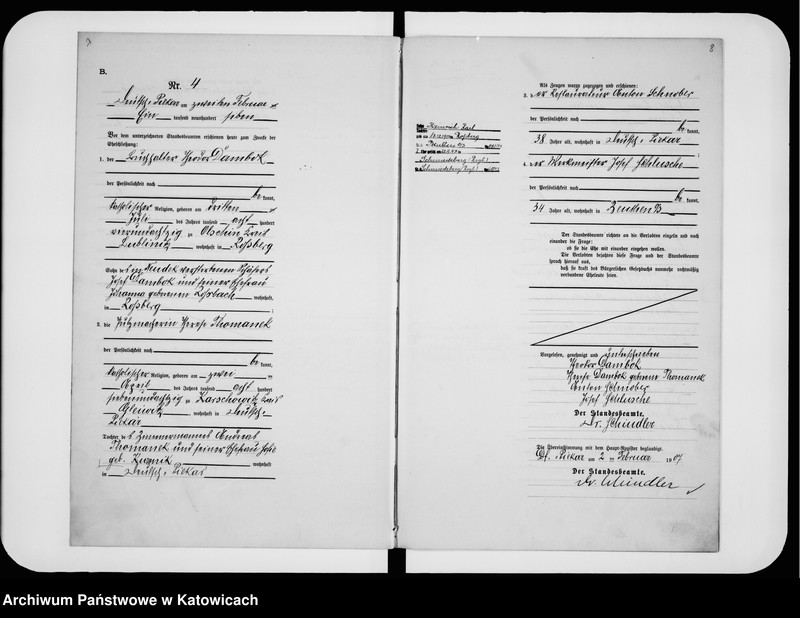 7
B.
Nr. 4
Deutsch-Piekar am zweiten Februar
Ein tausend neunhundert sieben
Vor dem unterzeichneten Standesbeamten erschienen heute zum Zwecke der
Eheschließung:
1. der Buchhalter Theodor Dambok
der Persönlichkeit nach
be kannt,
katholischer Religion, geboren am dritten
Juli des Jahres tausend acht hundert
vierundachtzig zu Olschin Kreis
Lublinitz, wohnhaft in Roßberg
Sohn des in verstorbenen
Josef Dambok und seiner Ehefrau
Johanna geborenen Roßbach wohnhaft
in Roßberg ;
2. die Putzmacherin Therese Thomanek
der Persönlichkeit nach
be kannt,
katholischer Religion, geboren am zwei
April des Jahres tausend acht hundert
siebenundachtzig zu Karschowitz Kreis
Gleiwitz, wohnhaft in Deutsch-
Piekar
Tochter des Zimmermanns Andreas
Thomanek und seiner Ehefrau
geb. wohnhaft
in Deutsch-Piekar
8
Heinrich Karl
Roßberg
Beuthen
Schmiedeberg
Schmiedeberg
Als Zeugen waren zugezogen und erschienen:
3. der Restaurateur Anton Schnober
der Persönlichkeit nach
be kannt,
38 Jahre alt, wohnhaft in Deutsch-Piekar
4. der Werkmeister Josef Schlusche
der Persönlichkeit nach
be kannt,
34 Jahre alt, wohnhaft in Beuthen
Der Standesbeamte richtete an die Verlobten einzeln und nach
einander die Frage:
ob sie die Ehe mit einander eingehen wollen.
Die Verlobten bejahten diese Frage und der Standesbeamte
sprach hierauf aus,
daß sie kraft des Bürgerlichen Gesetzbuchs nunmehr rechtmäßig
verbundene Eheleute seien.
Vorgelesen, genehmigt und unterschrieben
Theodor Dambok
Therese Dambok geborene Thomanek
Anton Schnober
Josef Schlusche
Der Standesbeamte.
Dr. Schindler
Die Übereinstimmung mit dem Haupt-Register beglaubigt.
Dt. Piekar am 2 ten Februar 1907
Der Standesbeamte.
Dr. Schindler
Archiwum Państwowe w Katowicach